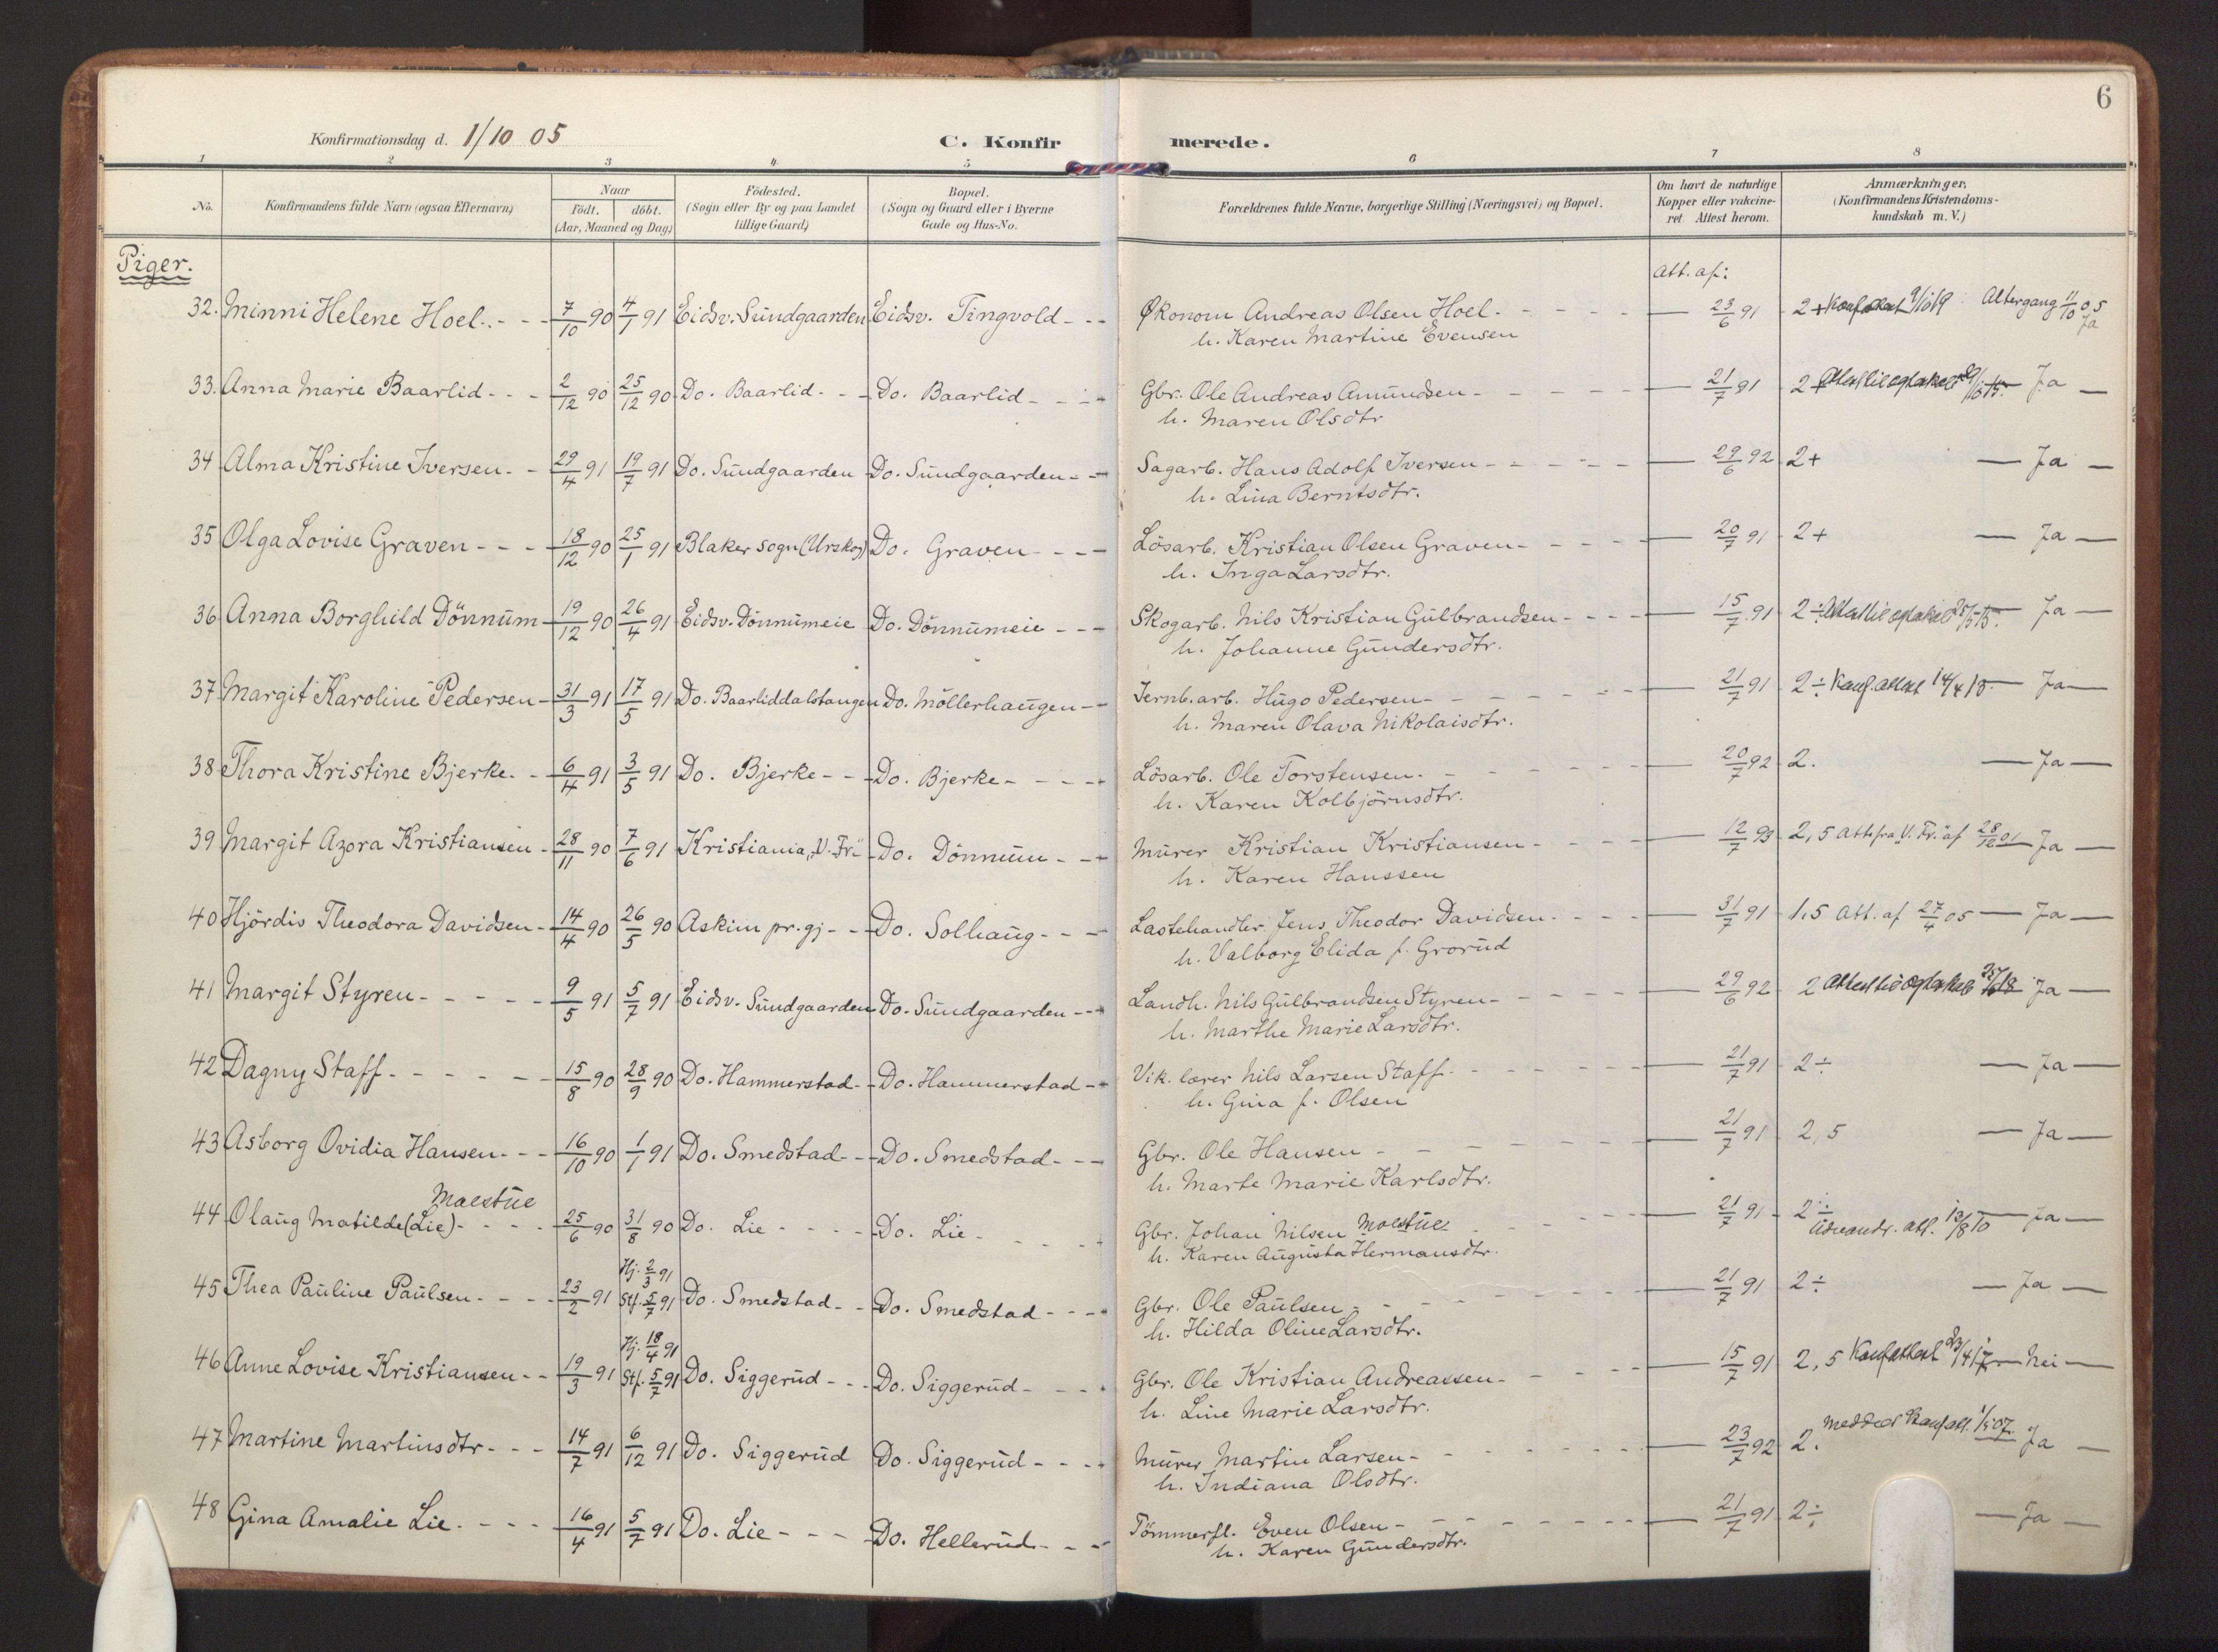 6
Konfirmationsdag d. 1/10 05
C. Konfirmerede.
1 2 3 4 5 6 7 8
No.
Konfirmandens fulde Navn (ogsaa Efternavn)
Naar
Födt. döbt.
(Aar, Maaned og Dag)
Födested.
(Sogn eller By og paa Landet
tillige Gaard)
Bopæl.
(Sogn og Gaard eller i Byerne
Gade og Hus-No.
Forældrenes fulde Navne, borgerlige Stilling (Næringsvei) og Bopæl.
Om havt de naturlige
Kopper eller vakcine-
ret. Attest herom.
Anmærkninger,
(Konfirmandens Kristendoms-
kundskab m. V.)
Piger.
Att. af:
32. Minni Helene Hoel. - - 7/10 90 4/1 91 Eidsv. Sundgaarden Eidsv. Tingvold - - Økonom Andreas Olsen Hoel. - - 23/6 91 2+ Konf.attest 9/10 19 Altergang 11/10 05 Ja
h. Karen Martine Evensen
33. Anna Marie Baarlid - - 2/12 90 25/12 90 Do. Baarlid - - Do. Baarlid - - Gbr. Ole Andreas Amundsen - - 21/7 91 2+ Attest til egteskab Ja
h. Maren Olsdtr
34 Alma Kristine Iversen - - 29/4 91 19/7 91 Do. Sundgaarden Do. Sundgaarden - - Sagarb. Hans Adolf Iversen - - 29/6 92 2+ Ja
h. Lina Berntsdtr.
35 Olga Lovise Graven - - 18/12 90 25/1 91 Blaker sogn (Urskog) Do. Graven - - Lösarb. Kristian Olsen Graven - - 20/7 91 2+ Ja
h. Inga Larsdtr.
36 Anna Borghild Dönnum - 19/12 90 26/4 91 Eidsv. Dönnumeie Do. Dönnumeie - - Skogarb. Nils Kristian Gulbrandsen - - 15/7 91 2÷ Attest til egteskab 25/5 15. Ja
h. Johanne Gundersdtr.
37 Margit Karoline Pedersen - 31/3 91 17/5 91 Do. Baarliddalstangen Do. Möllerhaugen - - Jernb.arb. Hugo Pedersen - - 21/7 91 2÷ Konf.attest 14/4 18 Ja
h. Maren Olava Nikolaisdtr.
38 Thora Kristine Bjerke. - - 6/4 91 3/5 91 Do. Bjerke - - Do. Bjerke - - Lösarb. Ole Torstensen. - - 20/7 92 2. Ja
h. Karen Kolbjörnsdtr.
39 Margit Azora Kristiansen - 28/11 90 7/6 91 Kristiania, "V. Fr." Do. Dönnum - - Murer Kristian Kristiansen - - 12/7 93 2,5 Att. fra V. Fr. af 28/12 01 Ja
h. Karen Hanssen
40 Hjördis Theodora Davidsen - 14/4 90 26/5 90 Askim pr.gj - - Do. Solhaug - - Lastehandler Jens Theodor Davidsen - - 31/7 91 1,5 Att. af 27/4 05 Ja
h. Valborg Elida f. Grorud
41 Margit Styren - - 9/5 91 5/7 91 Eidsv. Sundgaarden Do. Sundgaarden - - Landh. Nils Gulbrandsen Styren - - 29/6 92 2 Attest til egteskab Ja
h. Marthe Marie Larsdtr.
42 Dagny Staff. - - 15/8 90 28/9 90 Do. Hammerstad - - Do. Hammerstad - - Vik. lærer Nils Larsen Staff. - - 21/7 91 2÷ Ja
h. Gina f. Olsen
43 Asborg Ovidia Hansen - - 16/10 90 1/1 91 Do. Smedstad - - Do. Smedstad - - Gbr. Ole Hansen - - 21/7 91 2,5 Ja
h. Marte Marie Karlsdtr.
Maestue
44 Olaug Matilde (Lie) - - 25/6 90 31/8 90 Do. Lie - - Do. Lie - - Gbr. Johan Nilsen Moestue - - 21/7 91 2÷ Udvandr. att. 13/8 10 Ja
h. Karen Augusta Hermansdtr.
45 Thea Pauline Paulsen - - 23/2 91 Hj. 2/3 91 Stf. 5/7 91 Do. Smedstad - - Do. Smedstad - - Gbr. Ole Paulsen - - 21/7 91 2÷ Ja
h. Hilda Oline Larsdtr.
46 Anne Lovise Kristiansen - - 19/3 91 Hj. 18/4 91 Stf. 5/7 91 Do. Siggerud - - Do. Siggerud - - Gbr. Ole Kristian Andreassen - - 15/7 91 2,5 Konf.attest 23/4 17 Nei
h. Line Marie Larsdtr.
47 Martine Martinsdtr - - 14/7 91 6/12 91 Do. Siggerud Do. Siggerud - - Murer Martin Larsen - - 23/7 92 2. Meddelt Konf.att. 1/5 07. Ja
h. Indiana Olsdtr.
48 Gina Amalie Lie. - - 16/4 91 5/7 91 Do. Lie - - Do. Hellerud - - Tömmerfl. Even Olsen - - 21/7 91 2÷ Ja
h. Karen Gundersdtr.